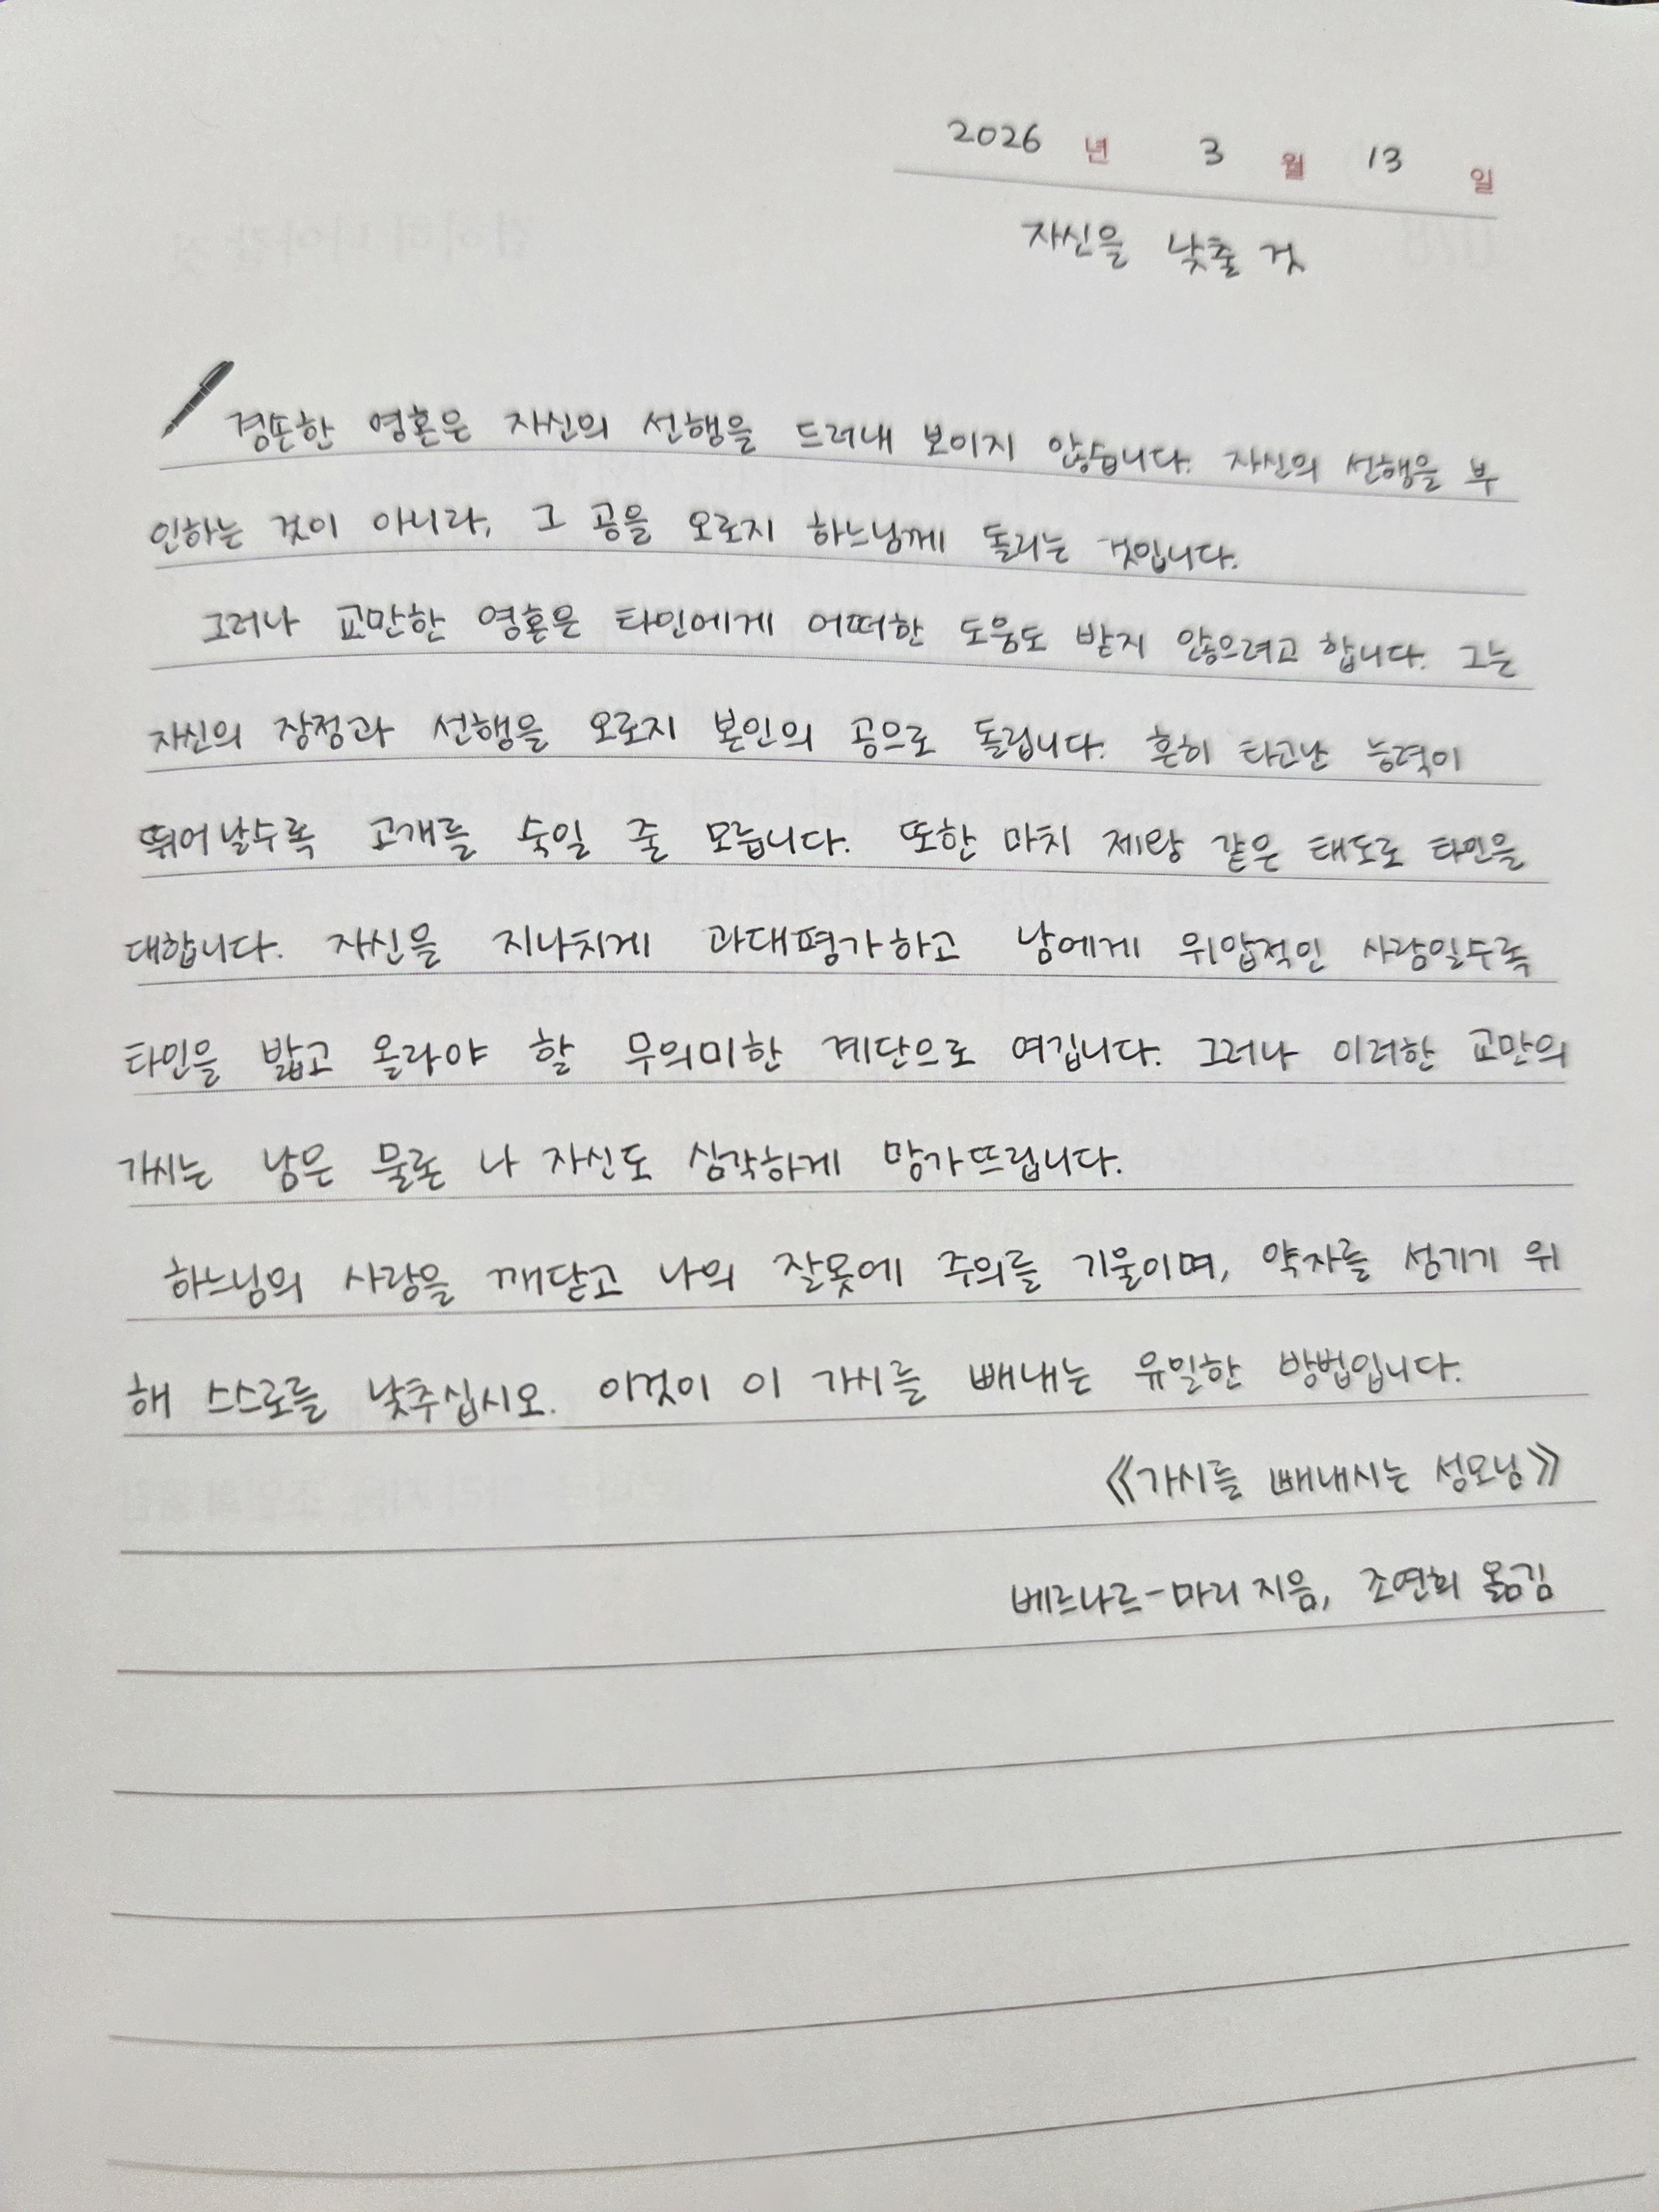 2026 년 3 월 13 일
자신을 낮출 것
겸손한 영혼은 자신의 선행을 드러내 보이지 않습니다. 자신의 선행을 부
인하는 것이 아니라, 그 공을 오로지 하느님께 돌리는 것입니다.
그러나 교만한 영혼은 타인에게 어떠한 도움도 받지 않으려고 합니다. 그는
자신의 장점과 선행을 오로지 본인의 공으로 돌립니다. 흔히 타고난 능력이
뛰어날수록 고개를 숙일 줄 모릅니다. 또한 마치 제왕 같은 태도로 타인을
대합니다. 자신을 지나치게 과대평가하고 남에게 위압적인 사람일수록
타인을 밟고 올라야 할 무의미한 계단으로 여깁니다. 그러나 이러한 교만의
가시는 남은 물론 나 자신도 심각하게 망가뜨립니다.
하느님의 사랑을 깨닫고 나의 잘못에 주의를 기울이며, 약자를 섬기기 위
해 스스로를 낮추십시오. 이것이 이 가시를 빼내는 유일한 방법입니다.
《가시를 빼내시는 성모님》
베르나르-마리 지음, 조연희 옮김